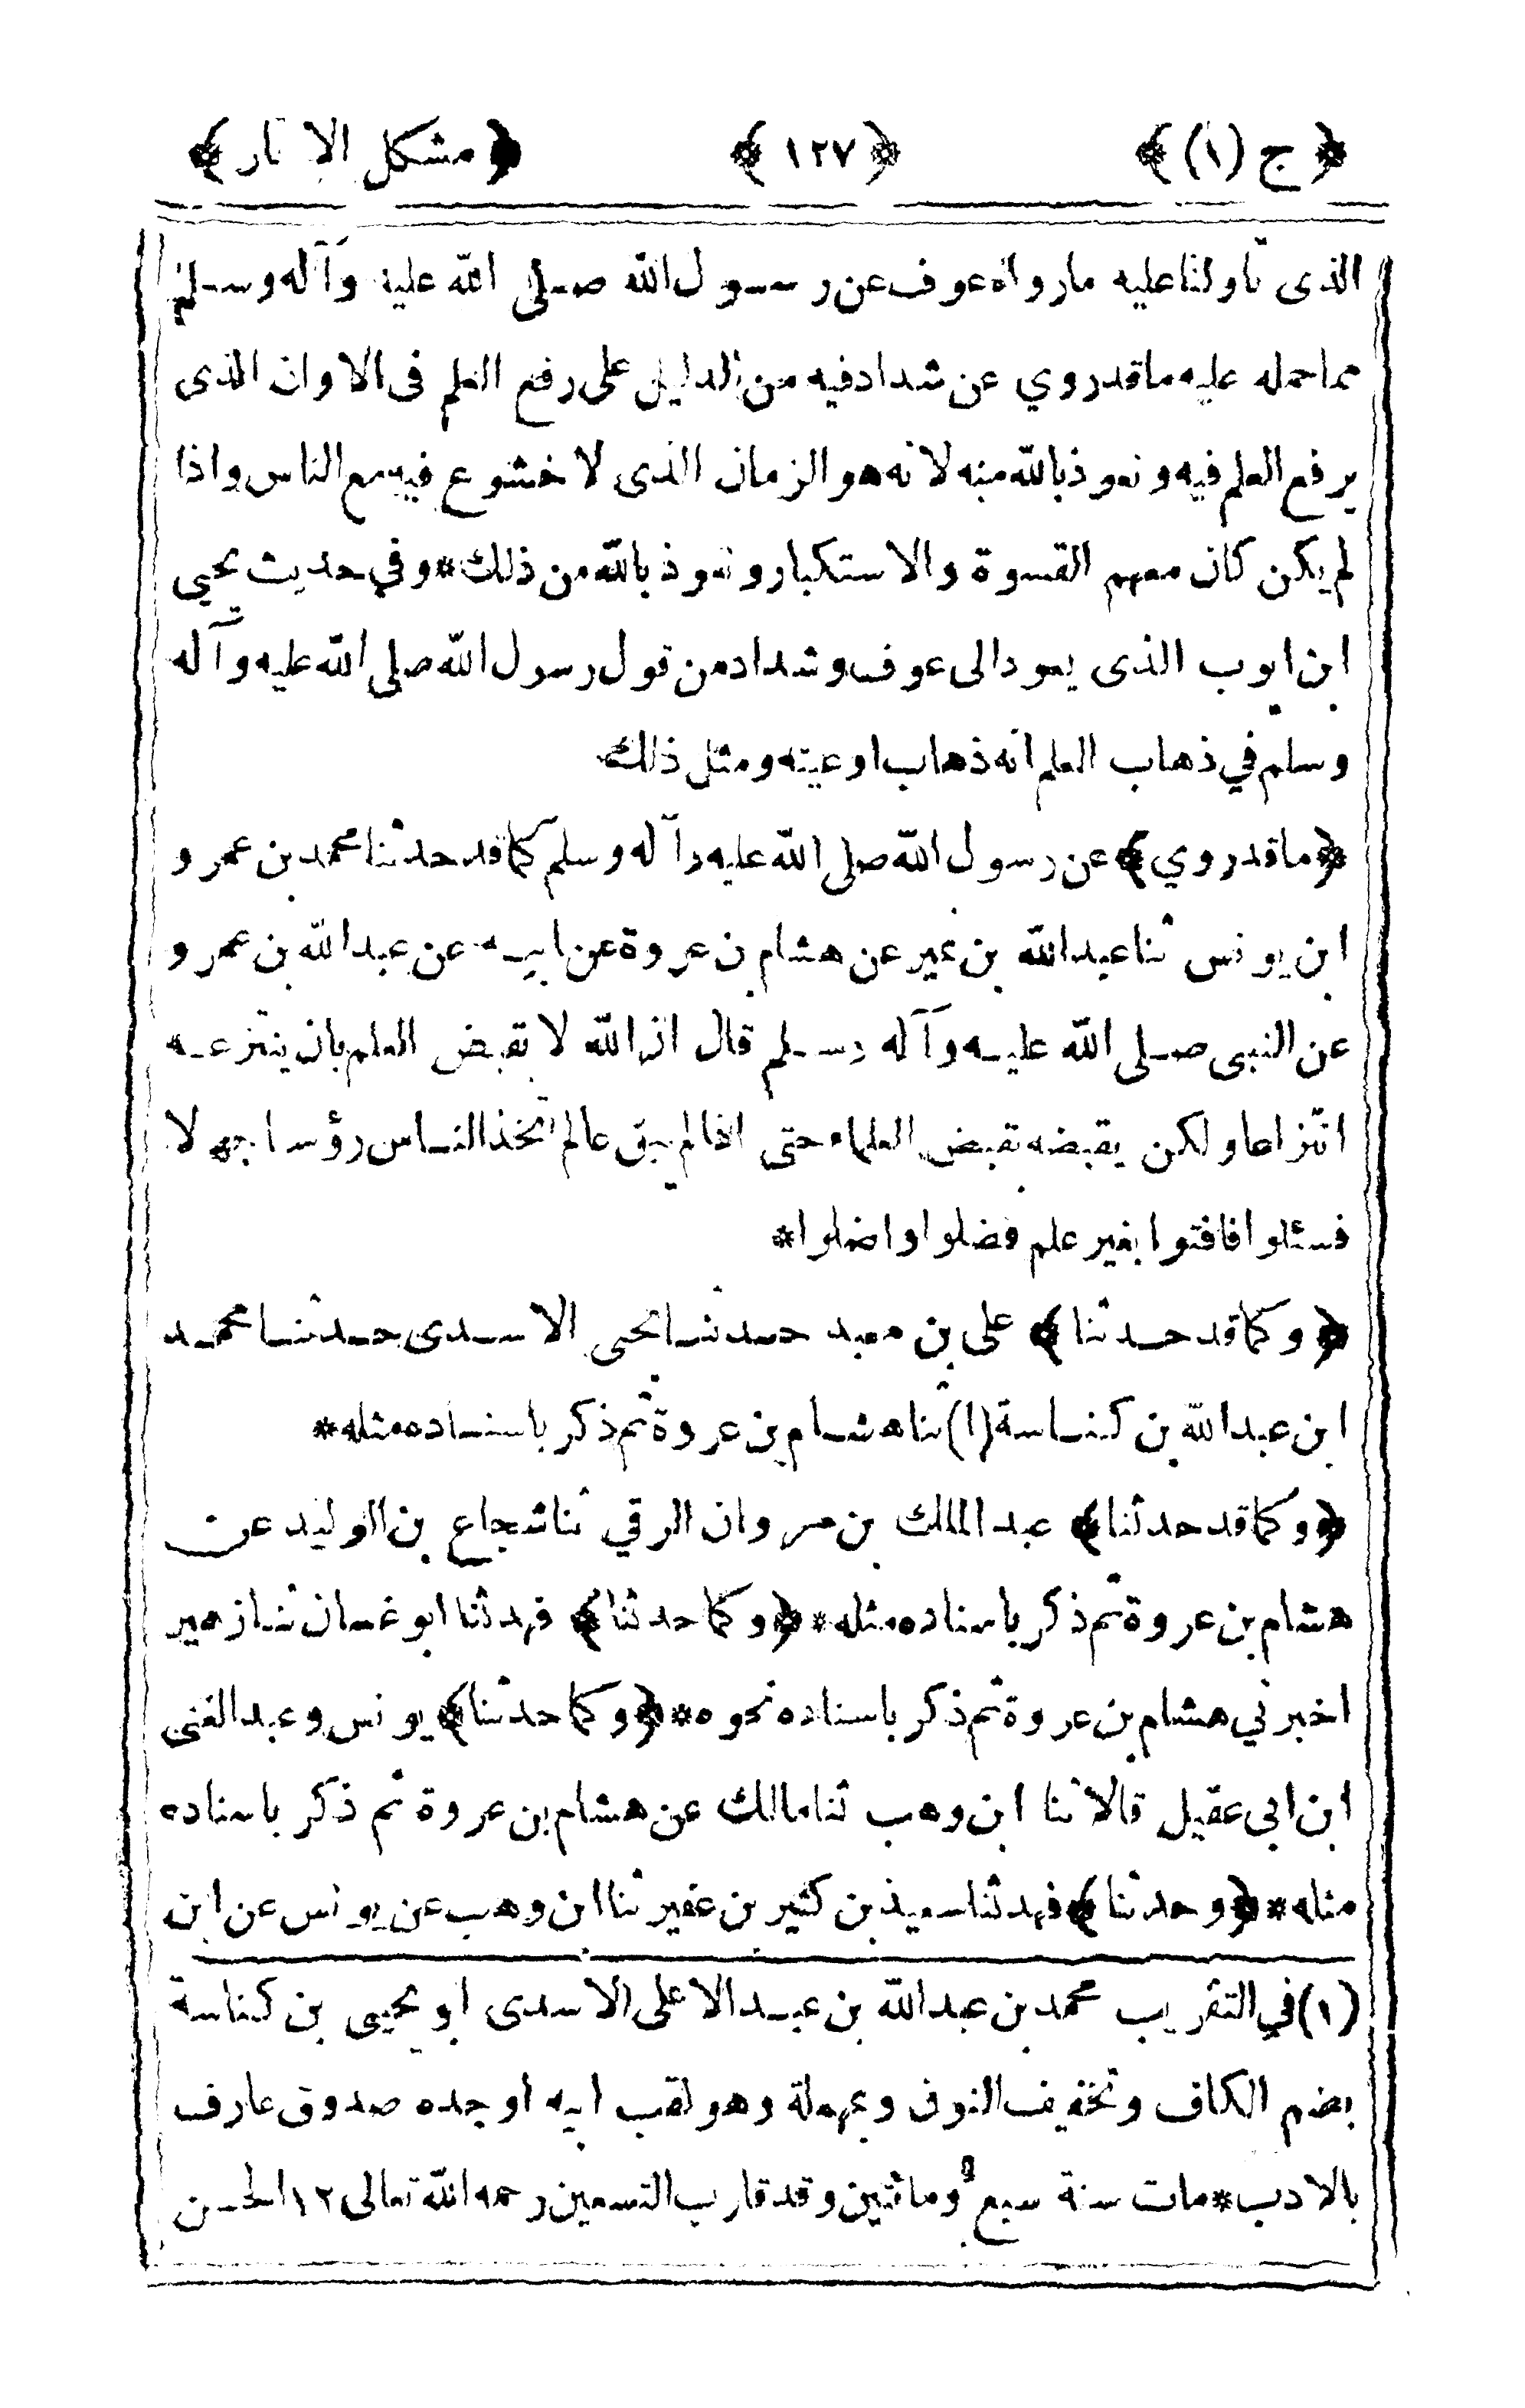 ﴿ ج (١) ﴾ ﴿ ١٢٧ ﴾ ﴿ مشكل الآثار ﴾
الذى تاولنا عليه مارواه عوف عن رسول الله صلى الله عليه وآله وسلم
مما حمله عليه ماقد روي عن شداد فيه من الدليل على رفع العلم فى الاوان الذى
يرفع العلم فيه ونعوذ بالله منه لانه هو الزمان الذى لا خشوع فيه مع الناس واذا
لم يكن كان معهم القسوة والاستكبار ونعوذ بالله من ذلك * وفي حديث يحيى
ابن ايوب الذى يعود الى عوف وشداد من قول رسول الله صلى الله عليه وآله
وسلم في ذهاب العلم انه ذهاب اوعيته ومثل ذلك
﴿ ماقد روي ﴾ عن رسول الله صلى الله عليه وآله وسلم كما قد حدثنا محمد بن عمرو
ابن يونس ثنا عبد الله بن نمير عن هشام بن عروة عن ابيه عن عبد الله بن عمرو
عن النبى صلى الله عليه وآله وسلم قال ان الله لا يقبض العلم بان ينتزعه
انتزاعا ولكن يقبضه بقبض العلماء حتى اذا لم يبق عالم اتخذ الناس رؤسا جهلا
فسئلوا فافتوا بغير علم فضلوا واضلوا *
﴿ وكما قد حدثنا ﴾ على بن معبد حدثنا يحيى الاسدى حدثنا محمد
ابن عبد الله بن كناسة (١) ثنا هشام بن عروة ثم ذكر باسناده مثله *
﴿ وكما قد حدثنا ﴾ عبد الملك بن مروان الرقي ثنا شجاع بن الوليد عن
هشام بن عروة ثم ذكر باسناده مثله * ﴿ وكما حدثنا ﴾ فهد ثنا ابو غسان ثنا زهير
اخبرني هشام بن عروة ثم ذكر باسناده نحوه * ﴿ وكما حدثنا ﴾ يونس وعبد الغنى
ابن ابى عقيل قالا ثنا ابن وهب ثنا مالك عن هشام بن عروة ثم ذكر باسناده
مثله * ﴿ وحدثنا ﴾ فهد ثنا سعيد بن كثير بن عفير ثنا ابن وهب عن يونس عن ابن
(١) في التقريب محمد بن عبد الله بن عبد الاعلى الاسدى ابو يحيى بن كناسة
بضم الكاف وتخفيف النون وبمهملة وهو لقب ابيه او جده صدوق عارف
بالادب * مات سنة سبع ومائتين وقد قارب التسعين رحمه الله تعالى ١٢ الحسن